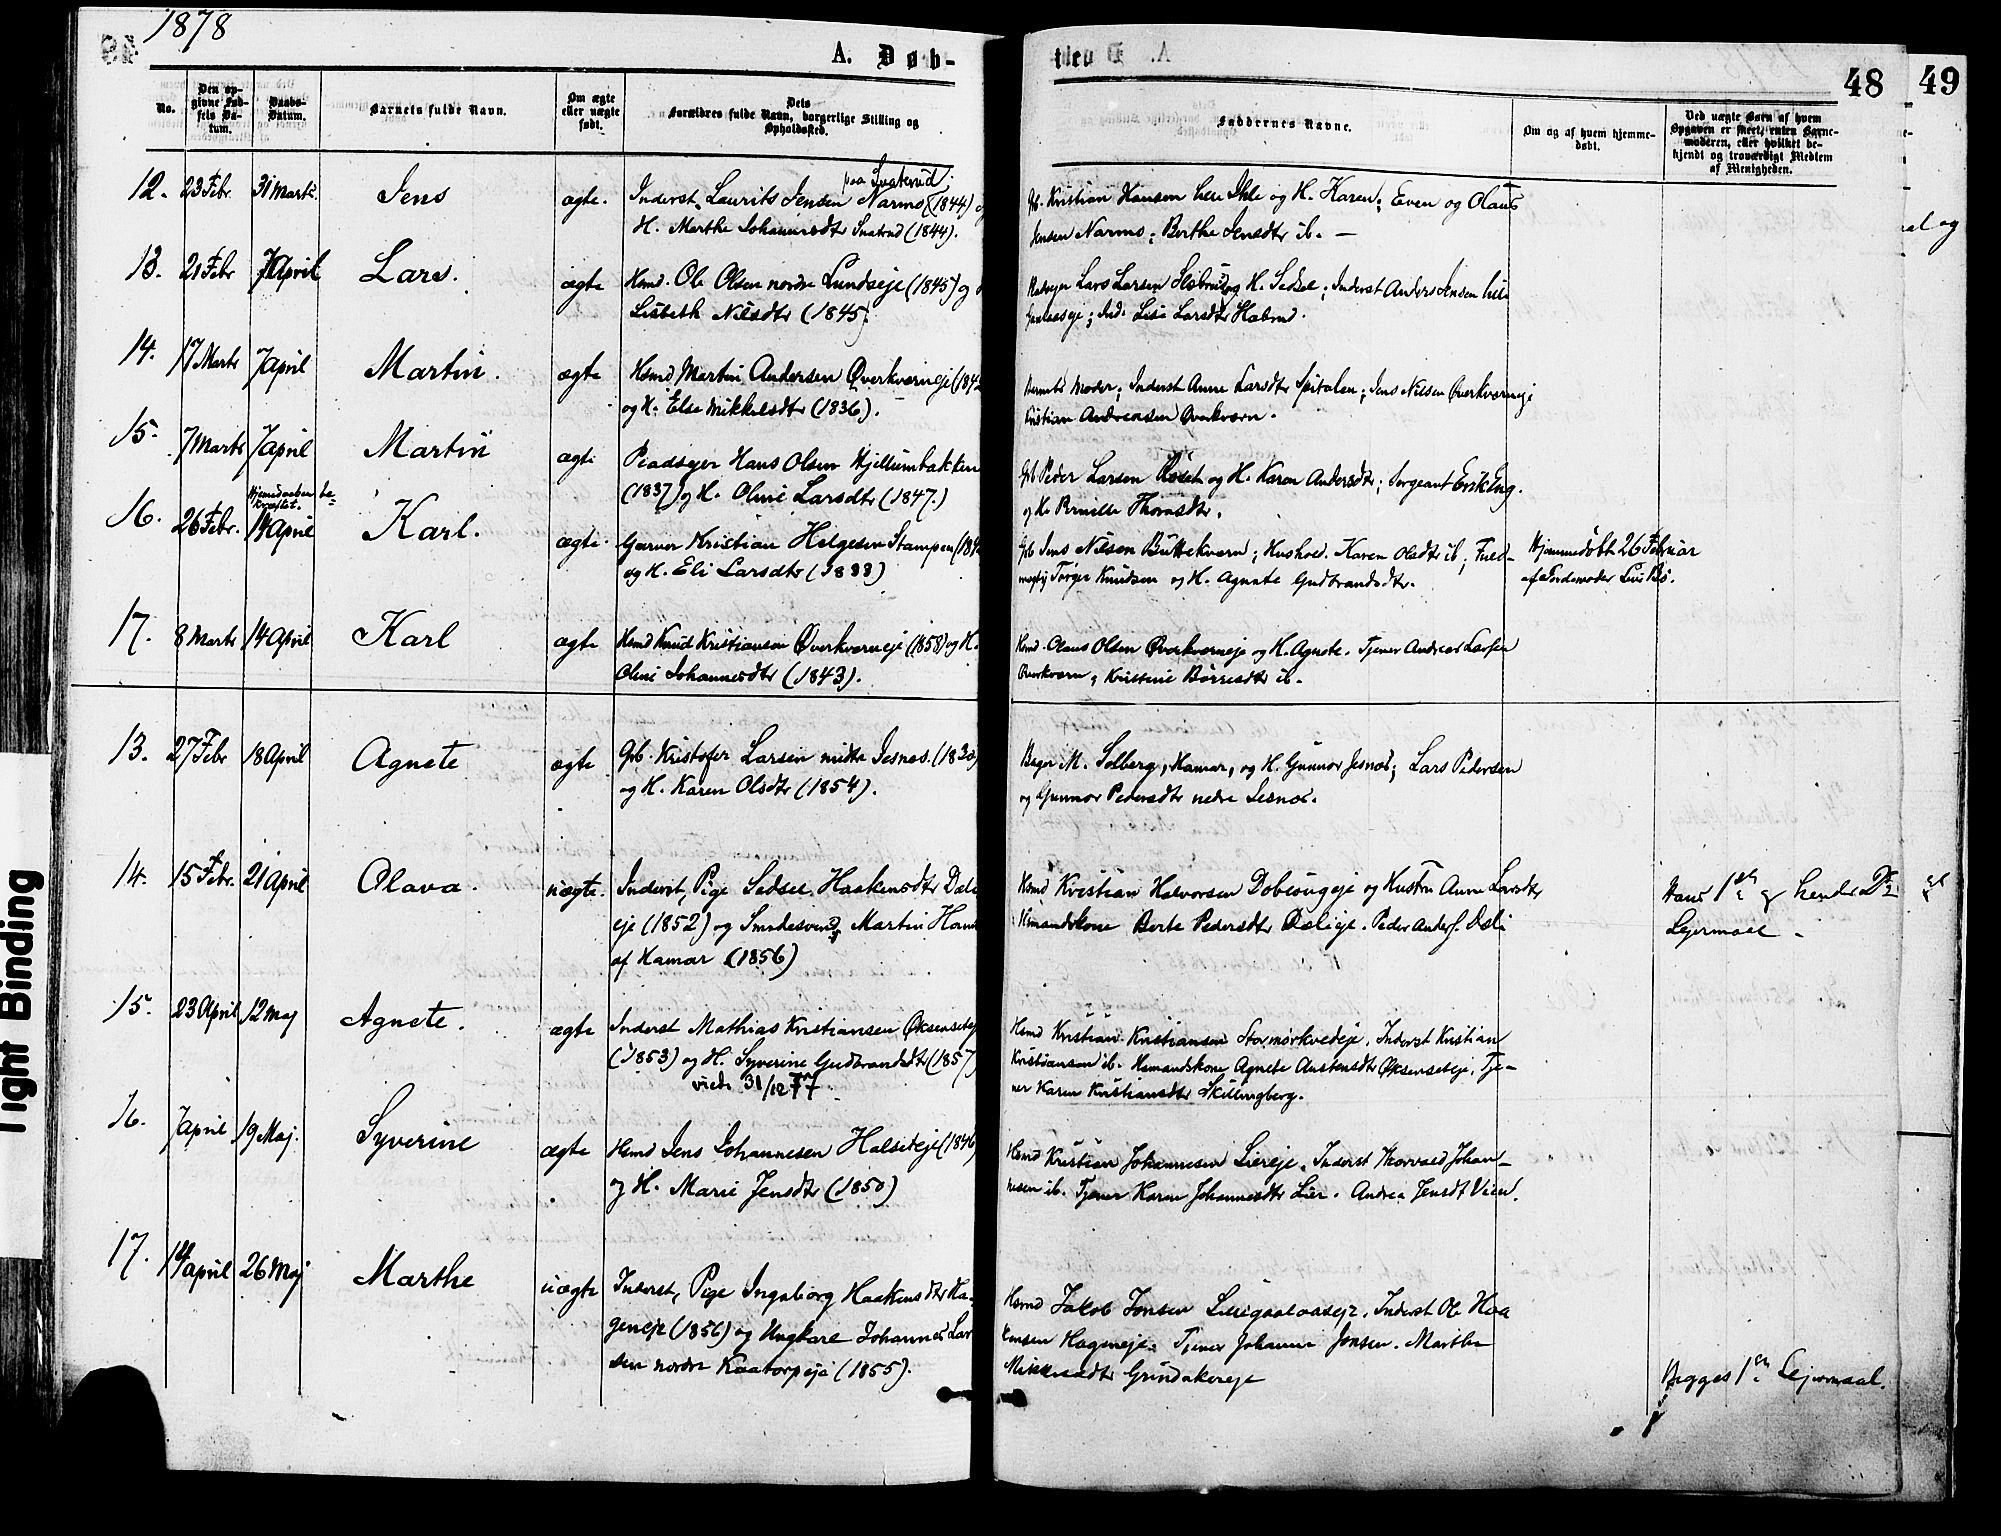 1878
A. Døb-
48
49
No.
Den op-
givne Fød-
sels Da-
tum.
Daabs-
Datum.
Barnets fulde Navn.
Om ægte
eller uægte
født.
Dets
Forældres fulde Navn, borgerlige Stilling og
Opholdssted.
Faddernes Navne.
Om og af hvem hjemme-
døbt.
Ved uægte Børn af hvem
Opgaven er skeet, enten Barne-
moderen, eller hvilket be-
kjendt og troværdigt Medlem
af Menigheden.
12. 23 Febr. 31 Marts. Jens ægte. Inderst Laurits Jensen Narmo (1844)
H. Marthe Johannesdtr Snaterud (1844).
Gb. Kristian Hansen lille Ihle og H. Karen; Even og Olaus
Jensen Narmo; Berthe Jensdtr ib. –
13. 21 Febr 7 April Lars. ægte Hsmd. Ole Olsen nordre Lundseje (1845) og
Lisbeth Nilsdtr (1845)
Lars Larsen og H. Sidsel; Inderst Anders Jensen lille
Ind. Lise Larsdtr
14. 17 Marts 7 April Martin. ægte Hsmd Martin Andersen Øverkværneje
og H. Else Mikkelsdtr (1836).
Barnets Moder; Inderst Anne Larsdtr Spitalen; Jens Nilsen Øverkværneje
Kristian Andreassen Øverkværn.
15. 7 Marts 7 April Martin ægte Pladsejer Hans Olsen Hjellumbakken
(1837) og H. Oline Larsdtr (1847.)
Gb Peder Larsen og H. Karen Andersdtr; Sergeant Erik Eng.
og H. Pernille Thorsdtr.
16. 26 Febr. Hjemmedaaben be-
kræftet.
14 April Karl. ægte. Garver Kristian Helgesen Stampen
og H. Eli Larsdtr (1838)
Gb Jens Nilsen Büttekværn; Hushold. Karen Olsdtr ib; Fuld-
mægtig Torger Knudsen og H. Agnete Gudbrandsdtr.
Hjemmedøbt 26 Februar
af Jordemoder Lise Bø.
17. 8 Marts 14 April Karl ægte Hsmd Knud Kristiansen Øverkværneje (1858) og H.
Oline Johannesdtr (1843).
Hsmd. Olaus Olsen Øverkværneje og H. Agnete. Tjener Andreas Larsen
Øverkværn, Kristine Børresdtr ib.
13. 27 Febr 18 April Agnete ægte Gb. Kristofer Larsen midtre Jesnes. (1830)
og H. Karen Olsdtr (1854).
Bager M. Solberg, Hamar, og H. Gunnor Jesnes; Lars Pedersen
og Gunnor Pedersdtr nedre Jesnes.
14. 15 Febr. 21 April Olava. uægte. Inderst, Pige Sidsel Haakensdtr Dæli
eje (1852) og Smedesvend Martin
af Hamar (1856)
Hsmd Kristian Halvorsen Doblougeje og Hustru Anne Larsdtr
Hsmandskone Berte Pedersdtr Dælieje. Peder Anders. Dæli
Hans 1ste og hendes 2det
Lejermaal –
15. 23 April 12 Maj Agnete. ægte Inderst Mathias Kristiansen
(1853) og H. Syverine Gudbrandsdtr (1857)
viede 31/12 77.
Hsmd Kristian Kristiansen Inderst Kristian
Kristiansen ib. Hsmandskone Agnete Austensdtr Tje-
ner Karen Kristiansdtr Skillingberg.
16. 7 April 19 Maj. Syverine ægte Hsmd Jens Johannesen Halseteje (1846)
og H. Marie Jensdtr (1850)
Hsmd Kristian Johannesen Liereje. Inderst Thorvald Johan-
nesen ib. Tjener Karen Johannesdtr Lier. Andrea Jensdt Vien.
17. 14 April 26 Maj Marthe uægte Inderst, Pige Ingeborg Haakensdtr Ha-
geneje (1856) og Ungkarl Johannes Lar
sen nordre Kaatorpeje (1855).
Hsmd Jakob Jonsen Inderst Ole Haa
kensen Hageneje. Tjener Johanne Jonsen. Marthe
Mikkelsdtr Grindakereje
Begges 1ste Lejermaal.
Tight Binding